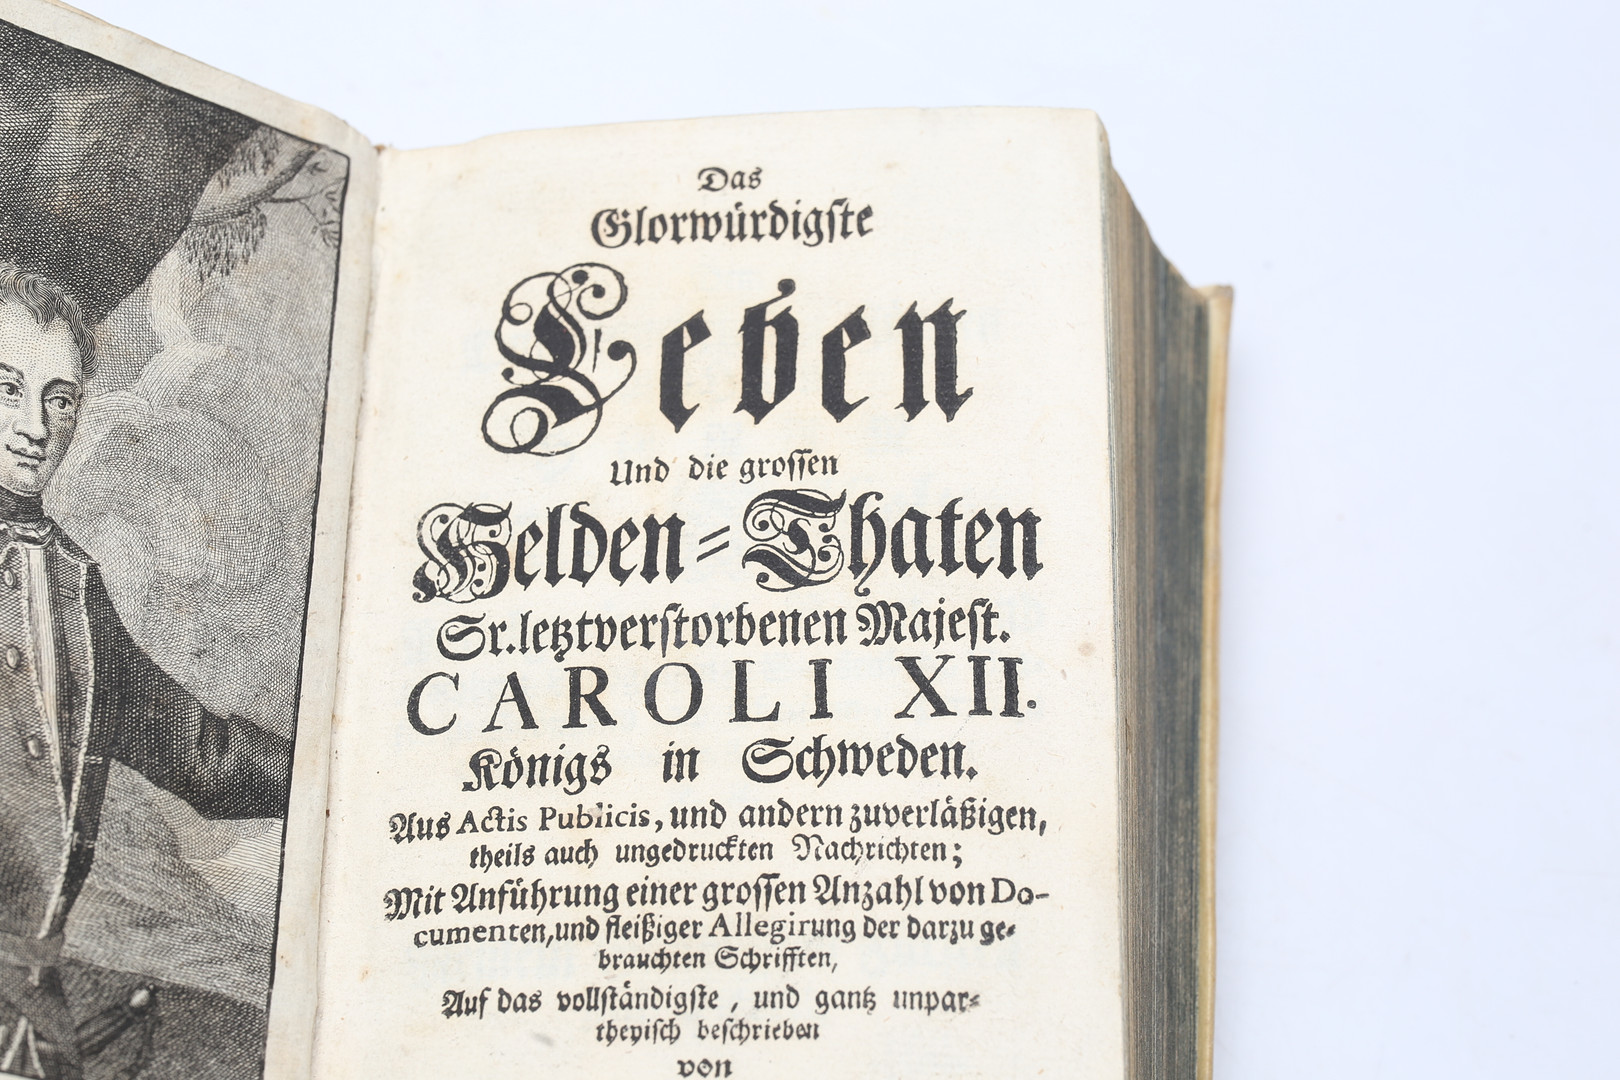 Das
Glorwürdigſte
Leben
Und die groſſen
Helden-Thaten
Sr. letztverſtorbenen Majeſt.
CAROLI XII.
Königs in Schweden.
Aus Actis Publicis, und andern zuverläßigen,
theils auch ungedruckten Nachrichten;
Mit Anführung einer groſſen Anzahl von Do-
cumenten, und fleißiger Allegirung der darzu ge-
brauchten Schrifften,
Auf das vollſtändigſte, und gantz unpar-
theyiſch beſchrieben
von